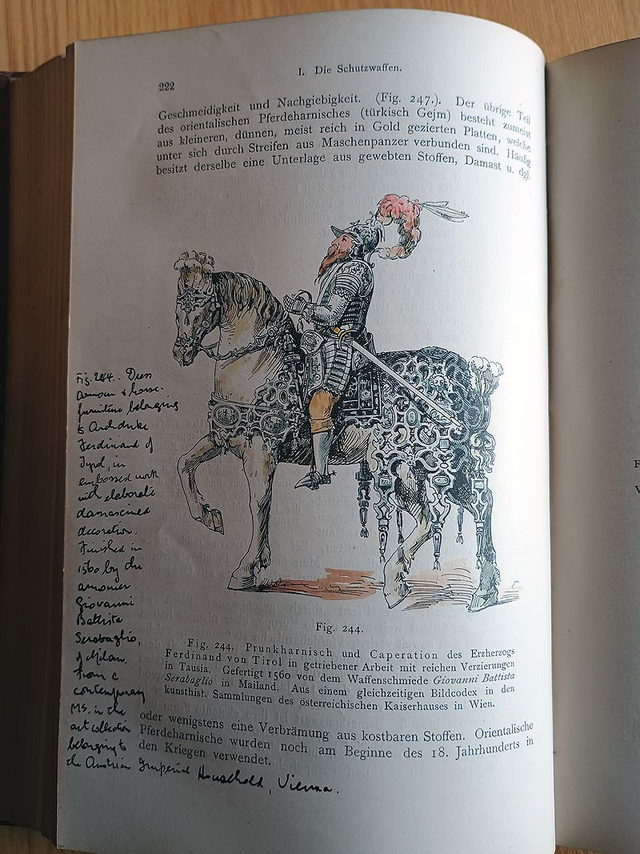 I. Die Schutzwaffen.
222
Geschmeidigkeit und Nachgiebigkeit. (Fig. 247.). Der übrige Teil
des orientalischen Pferdeharnisches (türkisch Gejm) besteht zumeist
aus kleineren, dünnen, meist reich in Gold gezierten Platten, welche
unter sich durch Streifen aus Maschenpanzer verbunden sind. Häufig
besitzt derselbe eine Unterlage aus gewebten Stoffen, Damast u. dgl.
Fig. 244. Dress
armour & horse-
furniture belonging
to Archduke
Ferdinand of
Tyrol, in
embossed work
with elaborate
damascened
decoration.
Finished in
1560 by the
armourer
Giovanni
Battista
Serabaglio,
of Milan.
from a
contemporary
MS. in the
art collection
belonging to
the Austrian Imperial Household, Vienna.
Fig. 244.
Fig. 244. Prunkharnisch und Caperation des Erzherzogs
Ferdinand von Tirol in getriebener Arbeit mit reichen Verzierungen
in Tausia. Gefertigt 1560 von dem Waffenschmiede Giovanni Battista
Serabaglio in Mailand. Aus einem gleichzeitigen Bildcodex in den
kunsthist. Sammlungen des österreichischen Kaiserhauses in Wien.
oder wenigstens eine Verbrämung aus kostbaren Stoffen. Orientalische
Pferdeharnische wurden noch am Beginne des 18. Jahrhunderts in
den Kriegen verwendet.